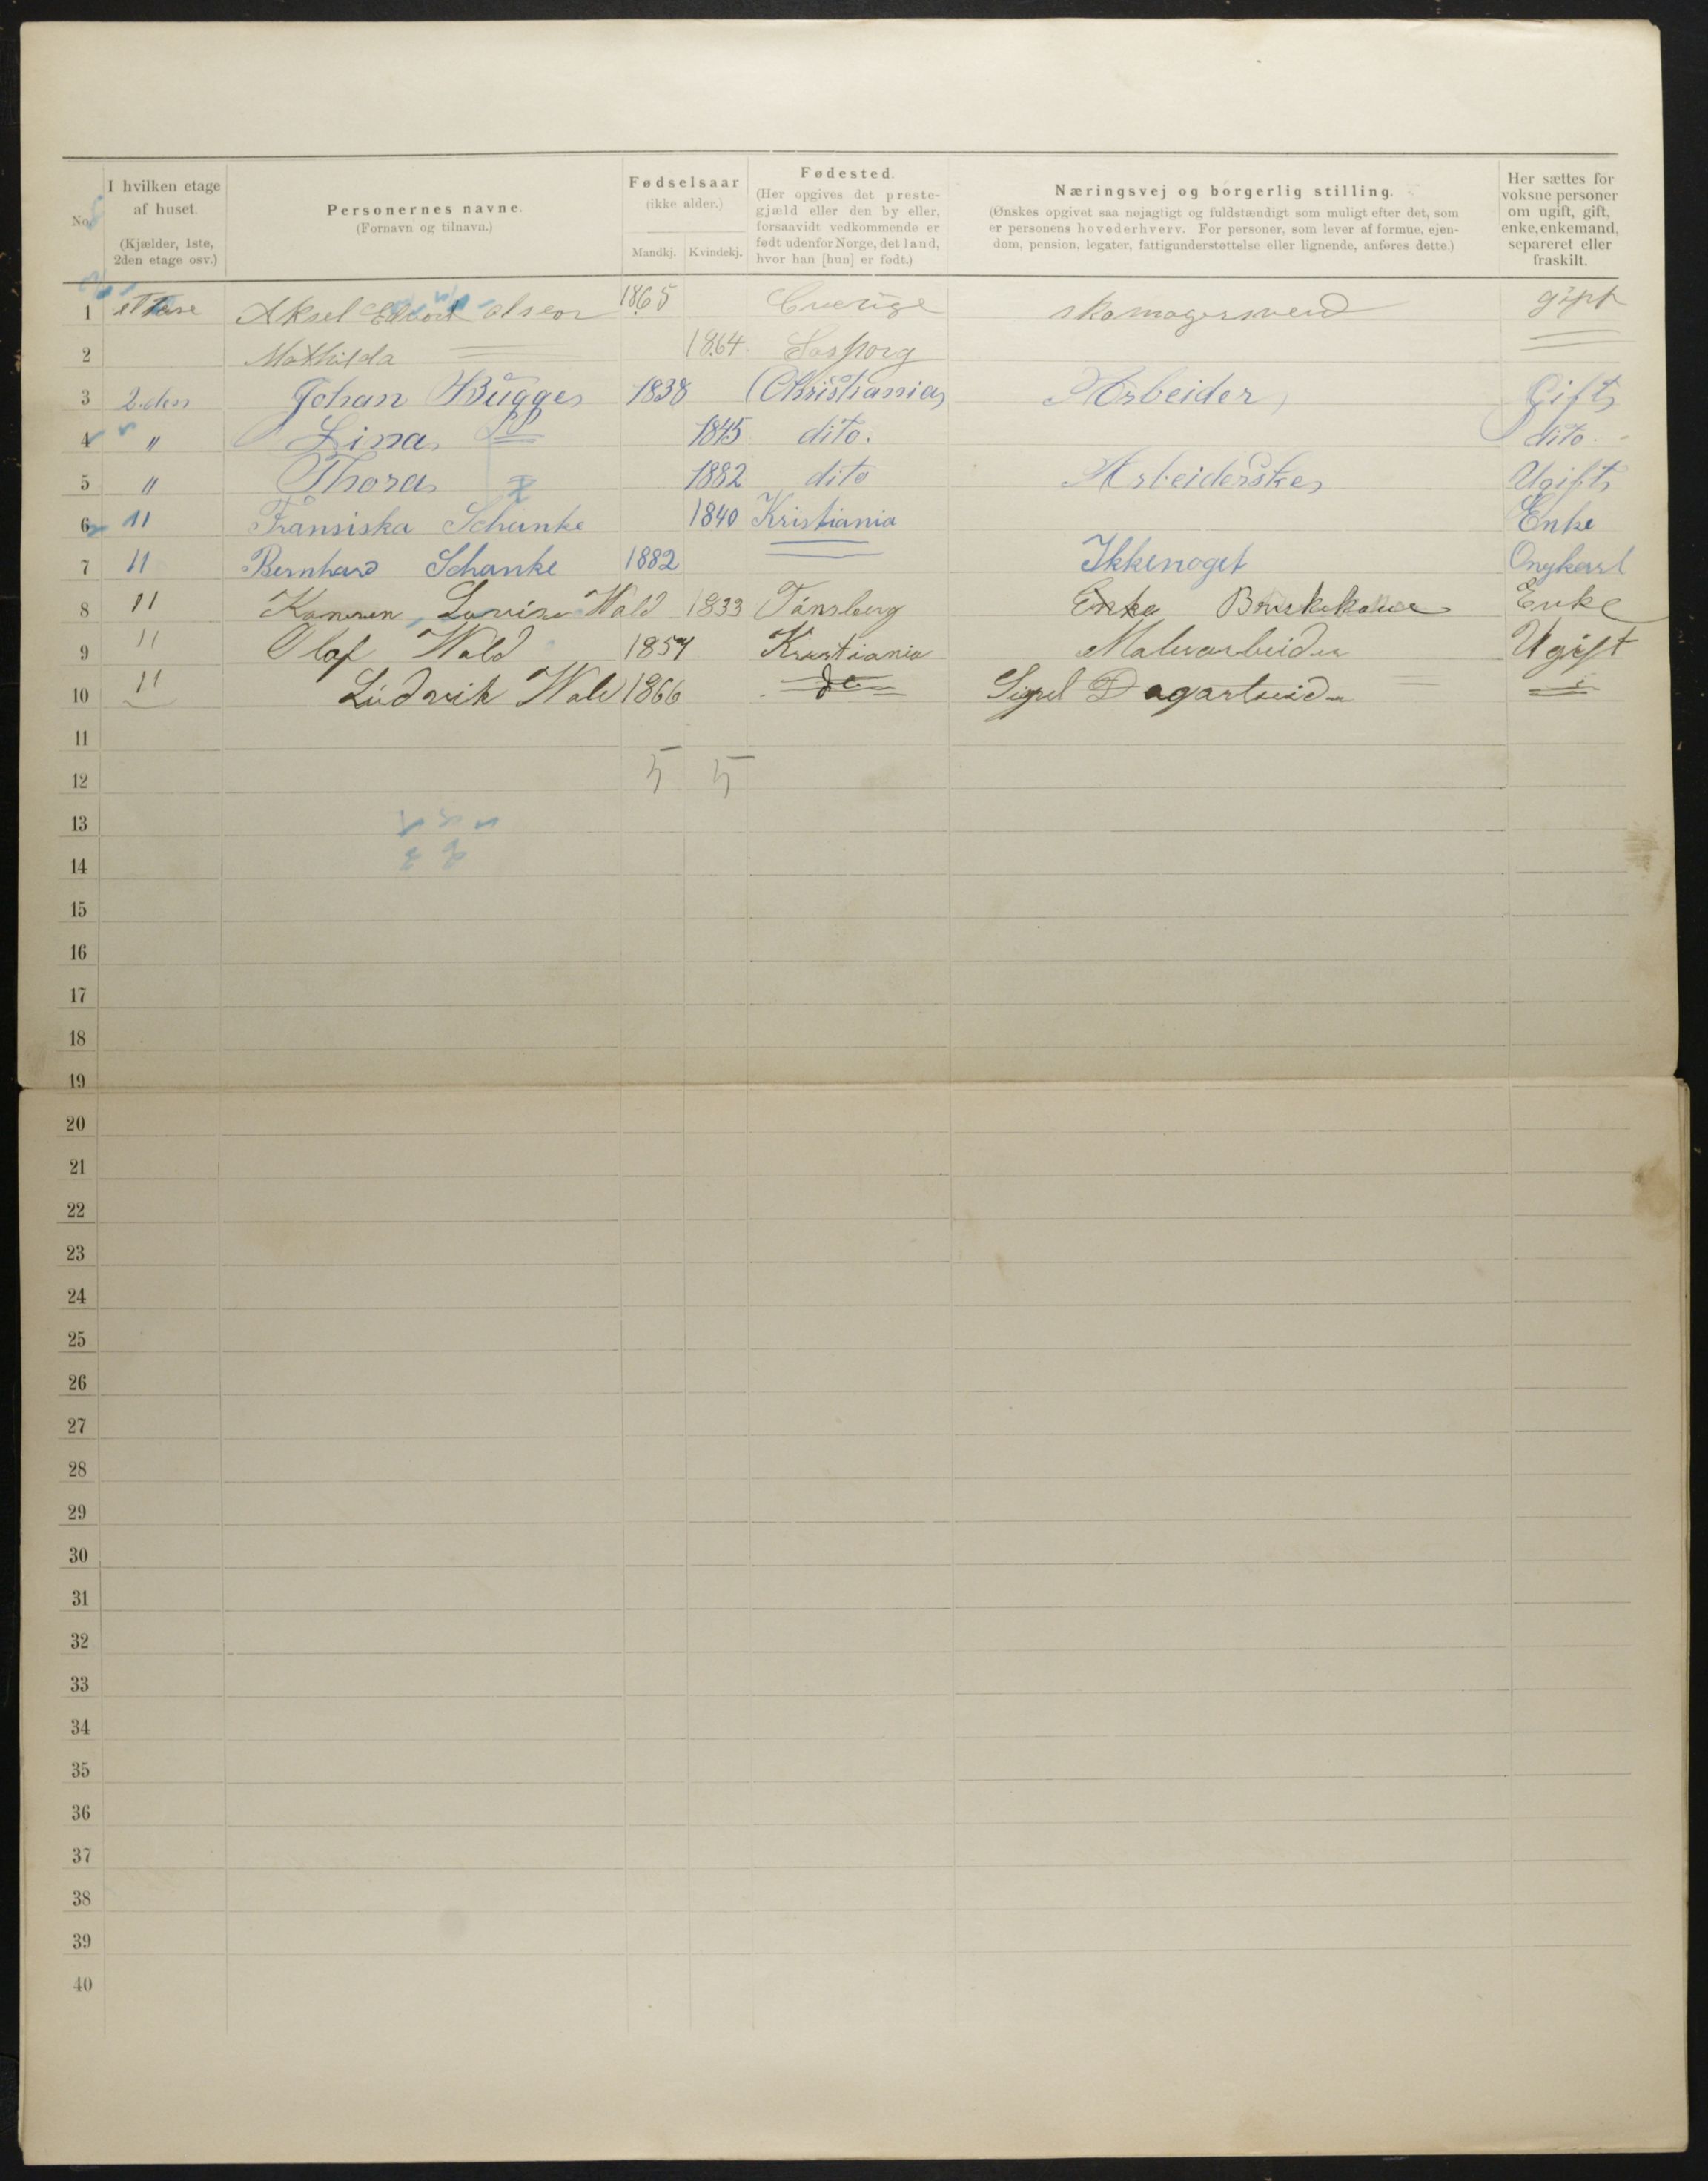 No.
I hvilken etage af huset. (Kjælder, 1ste, 2den etage osv.)
Personernes navne. (Fornavn og tilnavn.)
Fødselsaar (ikke alder.) Mandkj. Kvindekj.
Fødested. (Her opgives det prestegjæld eller den by eller, forsaavidt vedkommende er født udenfor Norge, det land, hvor han [hun] er født.)
Næringsvej og borgerlig stilling. (Ønskes opgivet saa nøjagtigt og fuldstændigt som muligt efter det, som er personens hovederhverv. For personer, som lever af formue, ejendom, pension, legater, fattigunderstøttelse eller lignende, anføres dette.)
Her sættes for voksne personer om ugift, gift, enke, enkemand, separeret eller fraskilt.
1 Aksel olson 1865 skomagersvend gipt
2 Mathilda 1864
3 2.den Johan Bugge 1838 Christiania Arbeider Gift
4 " Lina 1845 dito. dito
5 " Thora 1882 dito Arbeiderske Ugift
6 " Fransiska Schanke 1840 Kristiania Enke
7 " Bernhard Schanke 1882 Ikkenoget Ongkarl
8 " Lovise Wald 1833 Tønsberg Enke
9 " Olaf Wald 1857 Kristiania Malerarbeider Ugift
10 " Ludvik Wald 1866 do Dagarbeider
11
12 5 5
13
14
15
16
17
18
19
20
21
22
23
24
25
26
27
28
29
30
31
32
33
34
35
36
37
38
39
40